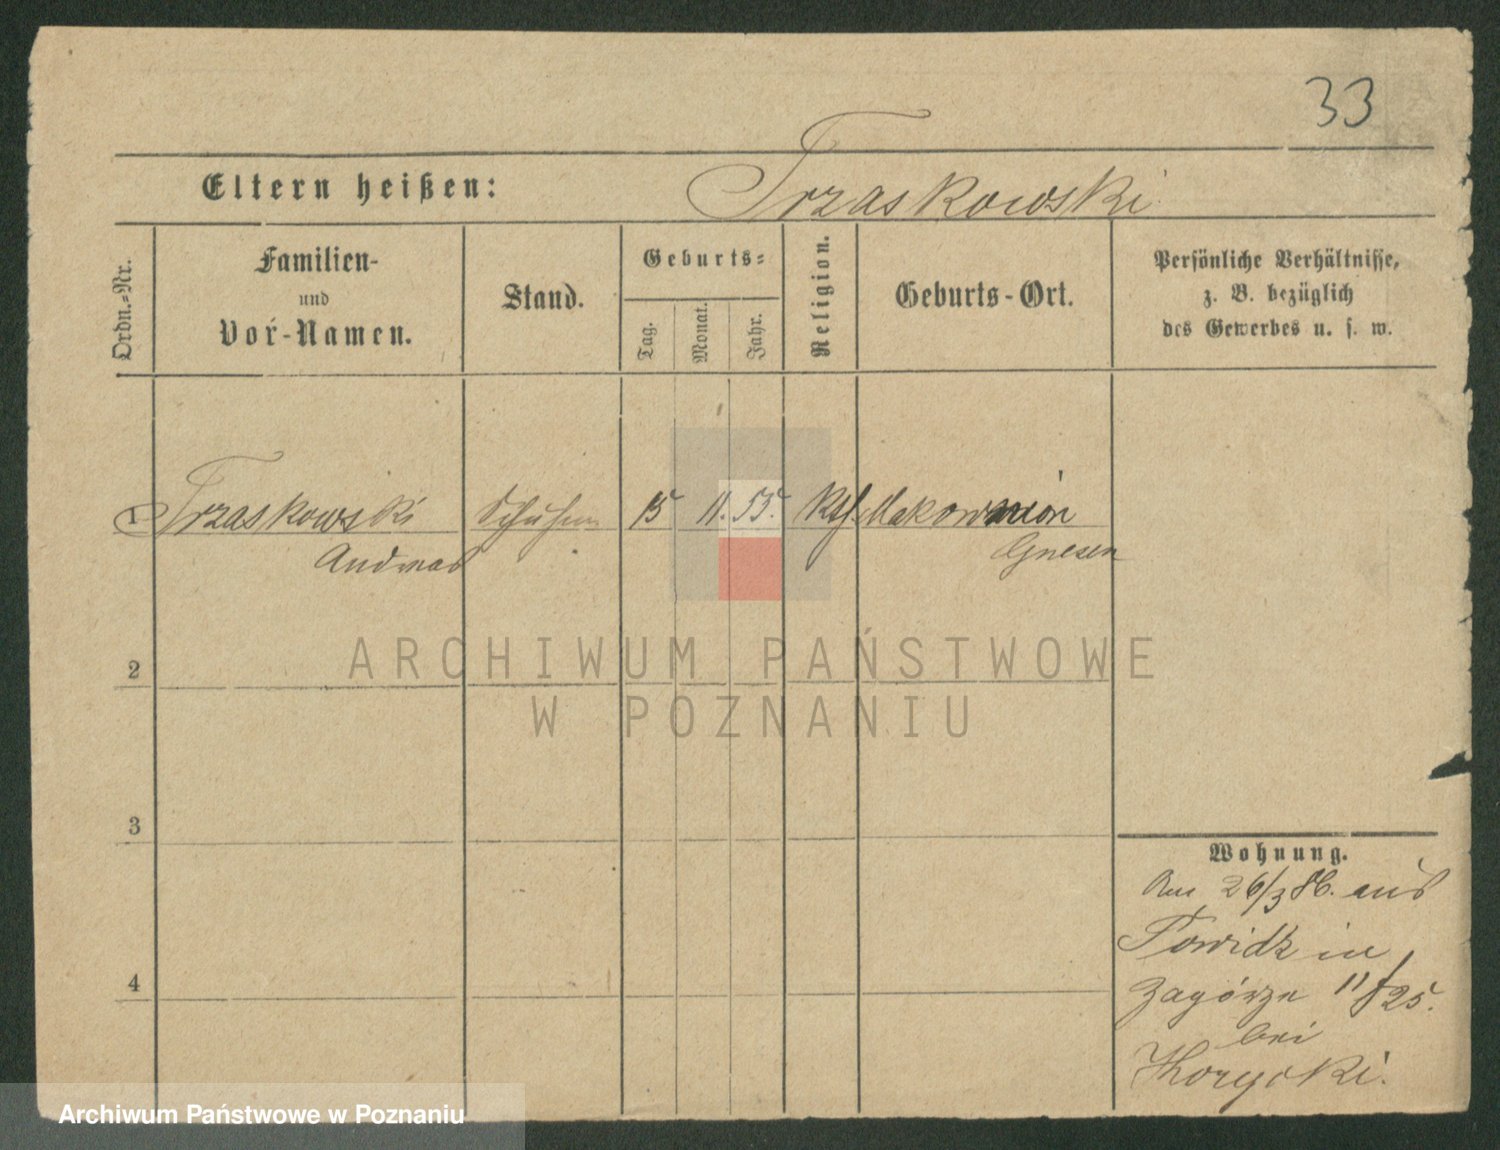 33
Eltern heißen: Trzaskowski
Ordn.-Nr.
Familien-
und
Vor-Namen.
Stand.
Geburts-
Tag.
Monat.
Jahr.
Religion.
Geburts-Ort.
Persönliche Verhältnisse,
z. B. bezüglich
des Gewerbes u. s. w.
1 Trzaskowski 15 11. 55. Kth.
Andreas Gnesen
ARCHIWUM PAŃSTWOWE
W POZNANIU
2
3
4
Wohnung.
Am 26/3 86. aus
Powidz in
Zagórze 11/ 25.
bei
Archiwum Państwowe w Poznaniu